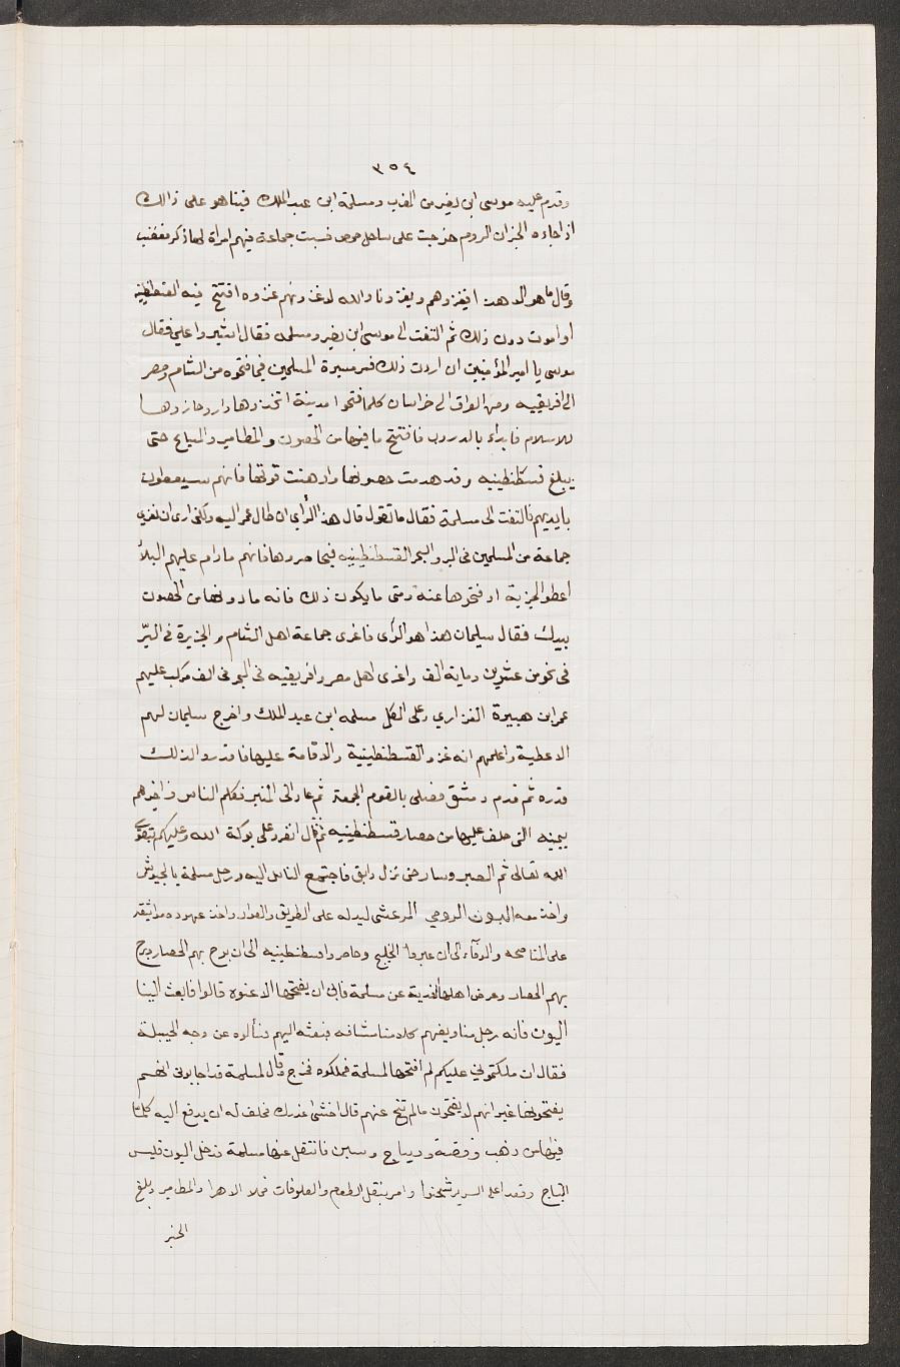 ٣٥٤
وقدم عليه موسى ابن نصير من الغرب ومسلمة ابن عبد الملك فبينا هو على ذالك
اذ اجاءه الخبر ان الروم خرجت على ساحل حمص فسبت جماعة فيهم امراة لها ذكر فغضب
وقال ما هو الا هذا نغزوهم ويغزونا والله لاغزونهم غزوه افتتح فيه القسطنطينيه
او اموت دون ذلك ثم التفت الى موسى ابن نصير ومسلمه فقال اشيروا علي فقال
موسى يا امير المؤمنين ان اردت ذلك فسر مسيرة المسلمين فيما فتحوه من الشام ومصر
الى افريقيه ومن العراق الى خراسان كلما فتحوا مدينة اتخذوها دار وحازوها
للاسلام فابداء بالدروب فافتتح ما فيها من الحصون والمطامير والمباع حتى
يبلغ قسطنطينيه وقد هدمت حصونها واوهنت قوتها فانهم سيعطون
بايديهم فالتفت الى مسلمة فقال ما تقول قال هذا الرأي ان طال عمر اليه ولكني ارى ان تغزي
جماعة من المسلمين في البر والبحر القسطنطينيه فيحاصروها فانهم مادام عليهم البلأ
اعطو الجزية او فتحوها عنه ومتى ما يكون ذلك فانه ما دونها من الحصون
بيدك فقال سليمان هذا هو الرأى فاغزى جماعة اهل الشام والجزيرة في البرّ
في نحو من عشرين ومايه الف واغزى اهل مصر وافريقيه في البحر في الف مركب عليهم
عمر ابن هبيرة الفزاري وعلى الكل مسلمه ابن عبد الملك واخرج سليمان لهم
الاعطية واعلمهم انه غزو القسطنطينية والاقامة عليها فاقدروا لذلك
قدره ثم قدم دمشق فصلى بالقوم الجمعة ثم عاد الى المنبر فكلم الناس واخبرهم
بيمينه التى حلف عليها من حصار قسطنطينيه ثم قال انفرو على بركة الله وعليكم بتقوى
الله تعالى ثم الصبر وسار حتى نزل دابق فاجتمع الناس اليه ورحل مسلمة بالجيوش
واخذ معه اليون الرومي المرعشى ليدله على الطريق والعوار واخذ عهوده مواثيقه
على المناصحه والوفآء الى ان عبروا الخليج وحاصروا قسطنطينيه الى ان برح بهم الحصار برح
بهم الحصار وعرض اهلها الفدية عن مسلمة فابى ان يفتحها الا عنوه قالوا فابعث الينا
اليون فانه رجل منا ويفهم كلامنا مشافه فبعثه اليهم فسألوه عن وجه الحيلة
فقال ان ملكتموني عليكم لم افتحها لمسلمة فملكوه فخرج وقال لمسلمة قد اجابونى انهم
يفتحونها غير انهم لا يفتحون مالم تنح عنهم قال اخشى غدرك فحلف له ان يدفع اليه كلما
فيها من ذهب وفضة وديباج وسبى فانتقل عنها مسلمة فدخل اليون فلبس
التاج وقعد على السرير وامر بنقل الطعام والعلوفات فملا الاهرا والمطامير وبلغ
الخبر